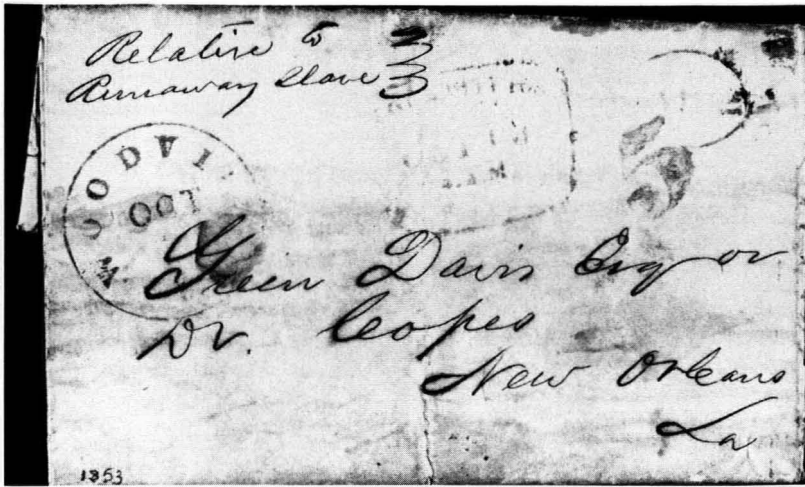 Relative to
Runaway Slave
WOODVI
OCT
Green Davis Esq or
Dr. Copes
New Orleans
La
1853